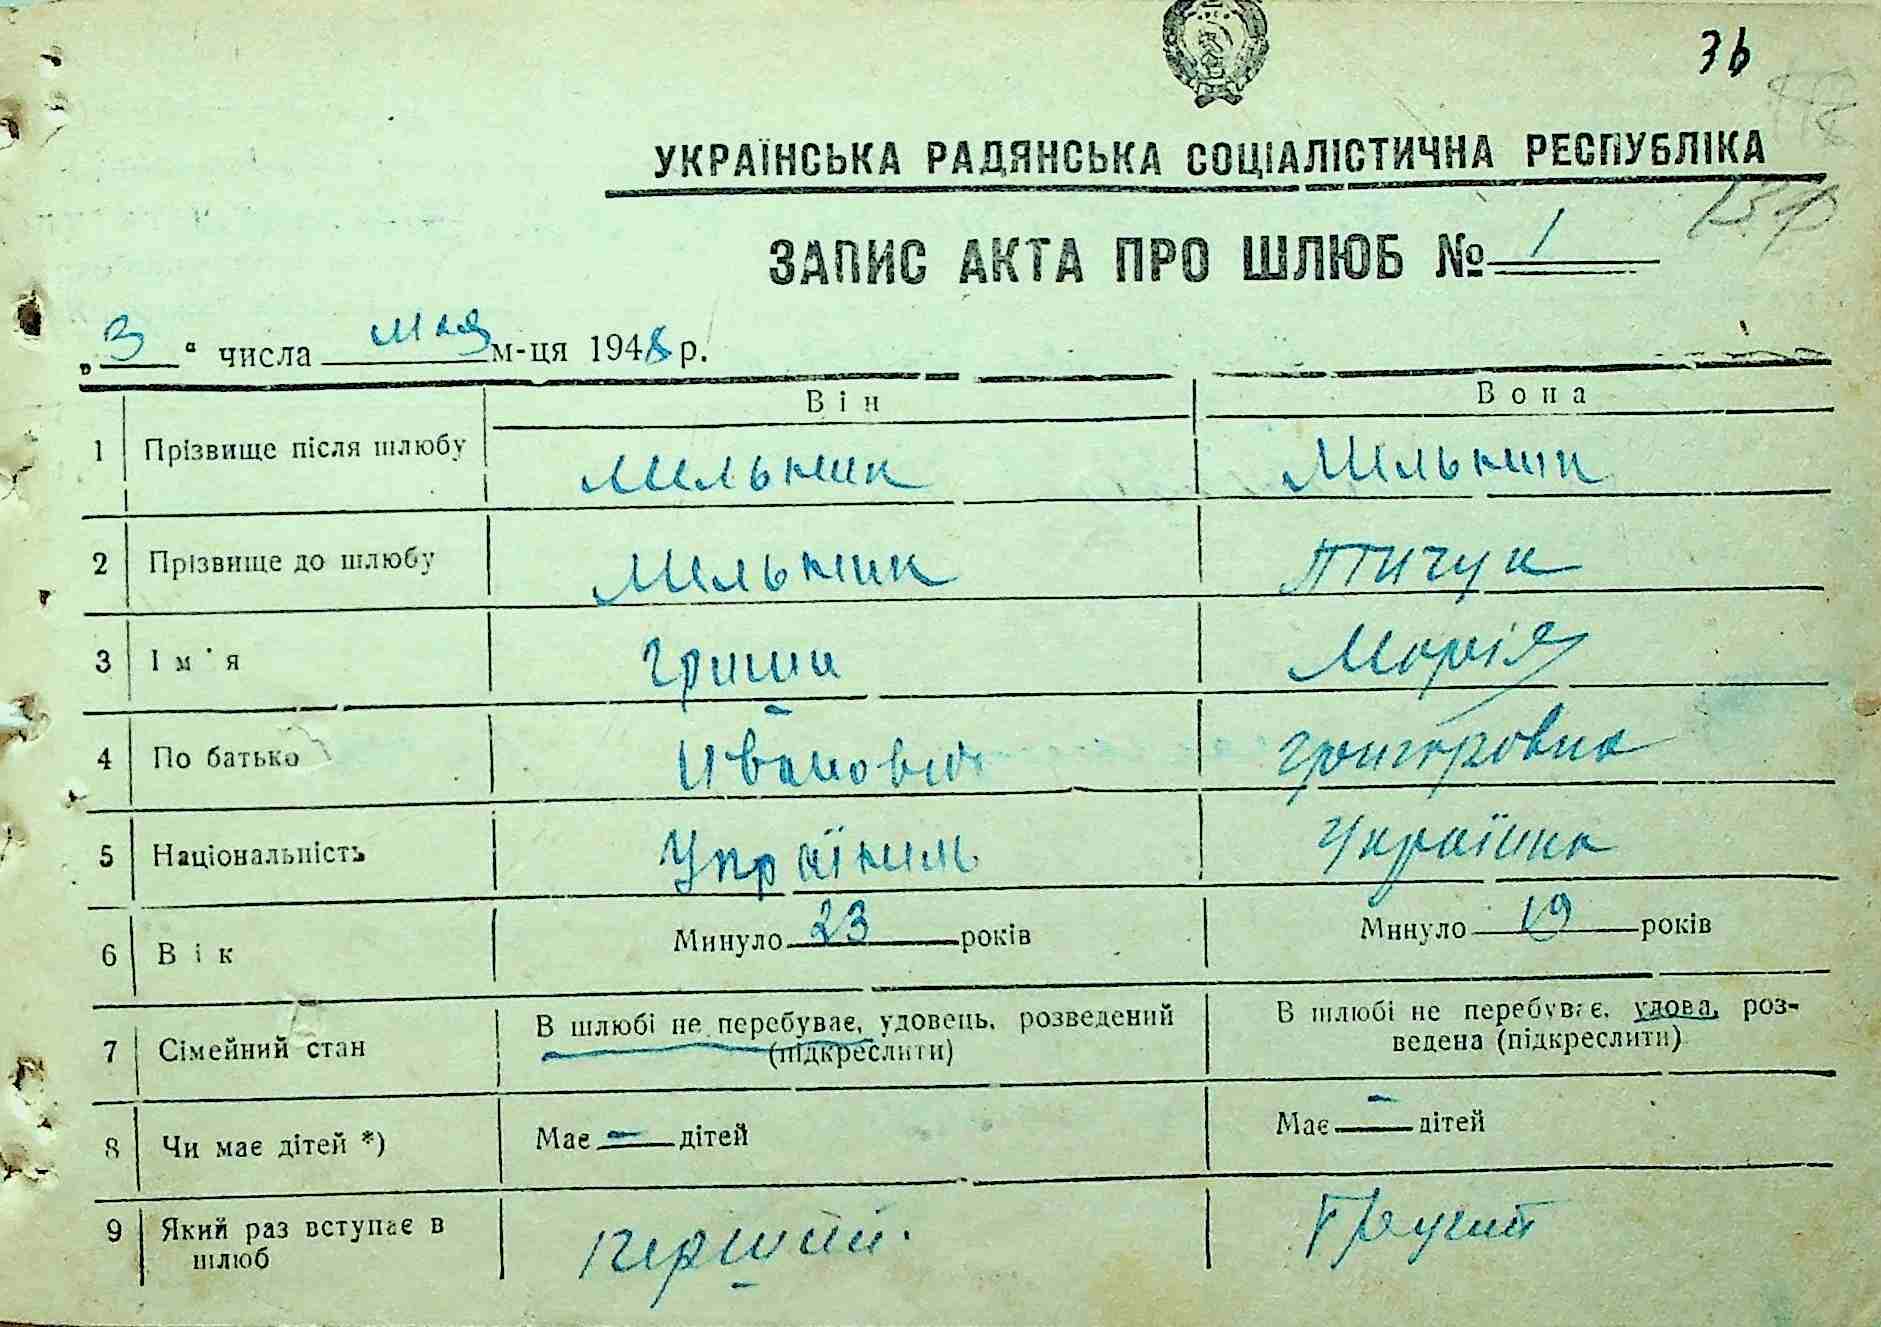 36
УКРАЇНСЬКА РАДЯНСЬКА СОЦІАЛІСТИЧНА РЕСПУБЛІКА
ЗАПИС АКТА ПРО ШЛЮБ № 1
„3“ числа мая м-ця 1948 р.
Він Вона
1 Прізвище після шлюбу Мельник Мельник
2 Прізвище до шлюбу Мельник Птичук
3 Ім'я Гриша Марія
4 По батько Ивановіч Григоровна
5 Національність Українець Українка
6 Вік Минуло 23 років Минуло 19 років
7 Сімейний стан В шлюбі не перебуває, удовець, розведений (підкреслити) В шлюбі не перебуває, удова, розведена (підкреслити)
8 Чи має дітей *) Має — дітей Має — дітей
9 Який раз вступає в шлюб перший.